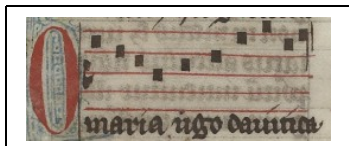 O maria ũgo dauitica